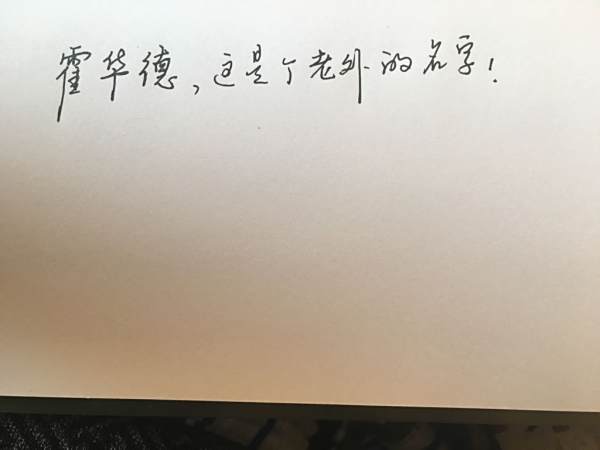 霍华德，这是个老外的名字！